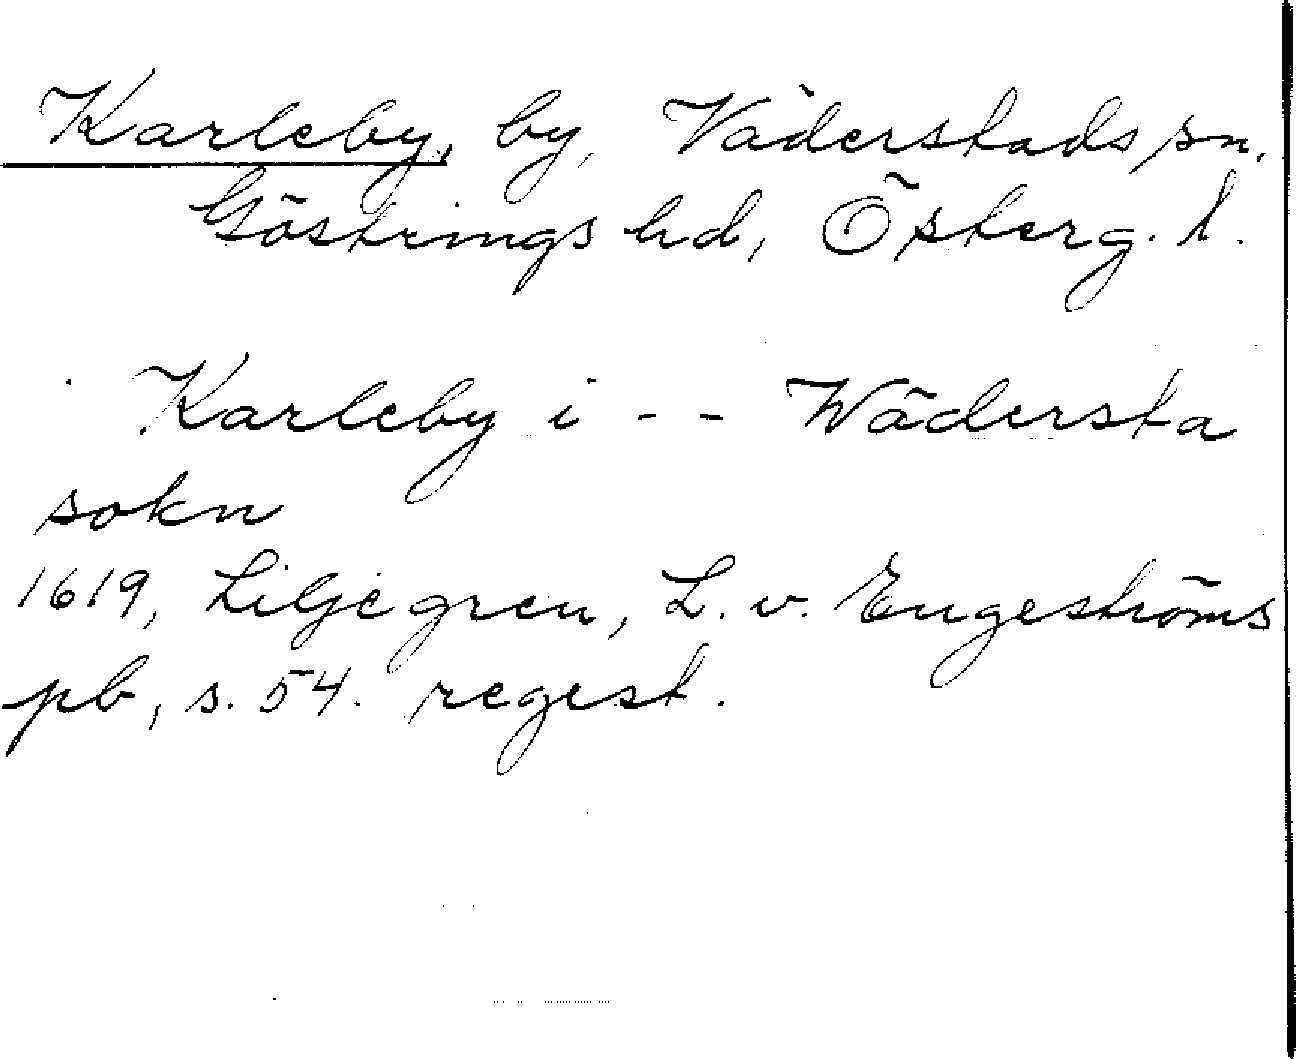 Karleby, by, Väderstads sn.
Göstrings hd, Österg. l.
Karleby i - - Wädersta
sokn
1619, Liljegren, L. v. Engeströms
pb, s. 54. regest.